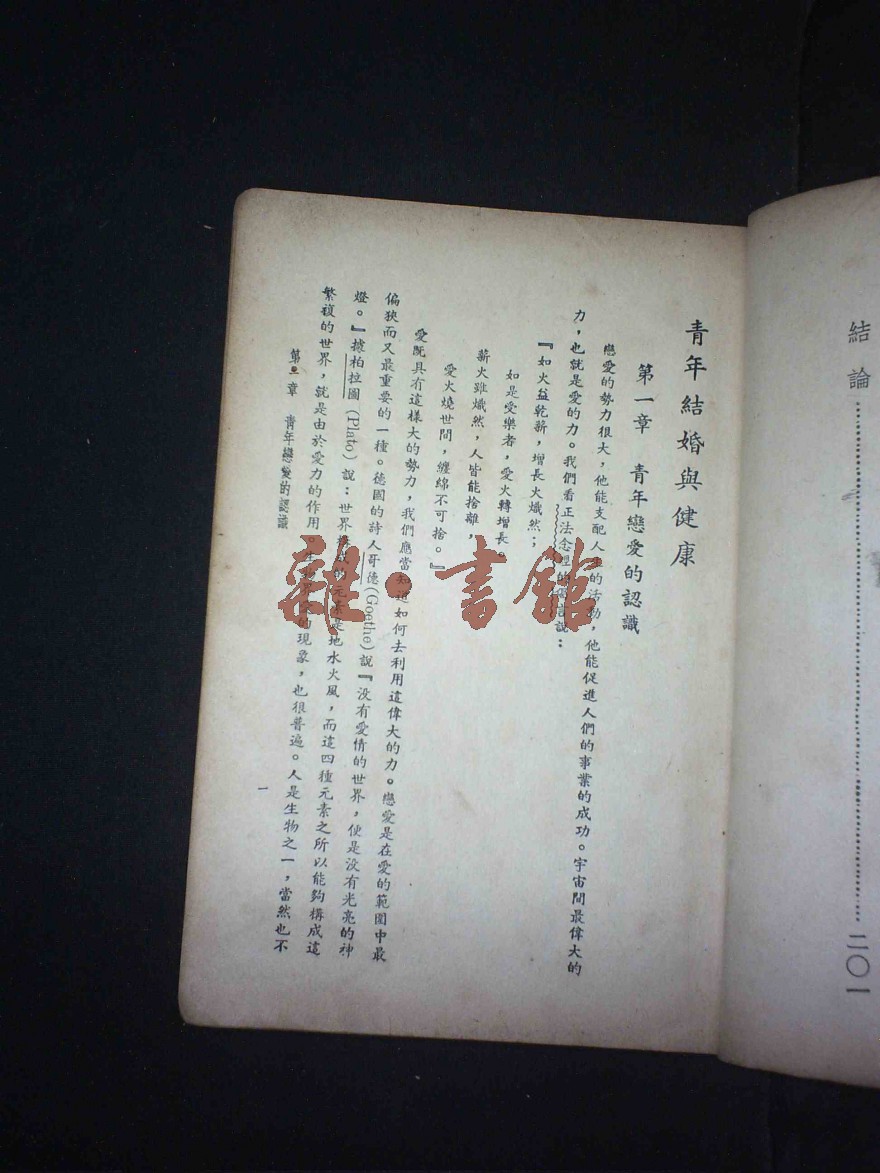 結論……………………………………二〇一
青年結婚與健康
第一章 青年戀愛的認識
戀愛的勢力很大，他能支配人生的活動，他能促進人們的事業的成功。宇宙間最偉大的
力，也就是愛的力。我們看正法念經的說：
『如火益乾薪，增長火熾然；
如是受樂者，愛火轉增長。
薪火雖熾然，人皆能捨離，
愛火燒世間，纏綿不可捨。』
愛既具有這樣大的勢力，我們應當知道如何去利用這偉大的力。戀愛是在愛的範圍中最
偏狹而又最重要的一種。德國的詩人哥德(Goethe)說『沒有愛情的世界，便是沒有光亮的神
燈。』據柏拉圖(Plato)說：世界構成的元素是地水火風，而這四種元素之所以能夠構成這
繁複的世界，就是由於愛力的作用。的現象，也很普遍。人是生物之一，當然也不
第一章 青年戀愛的認識
一
雜·書館